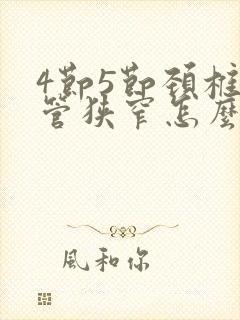 4節5節頸椎
管狹窄怎麼
風和你